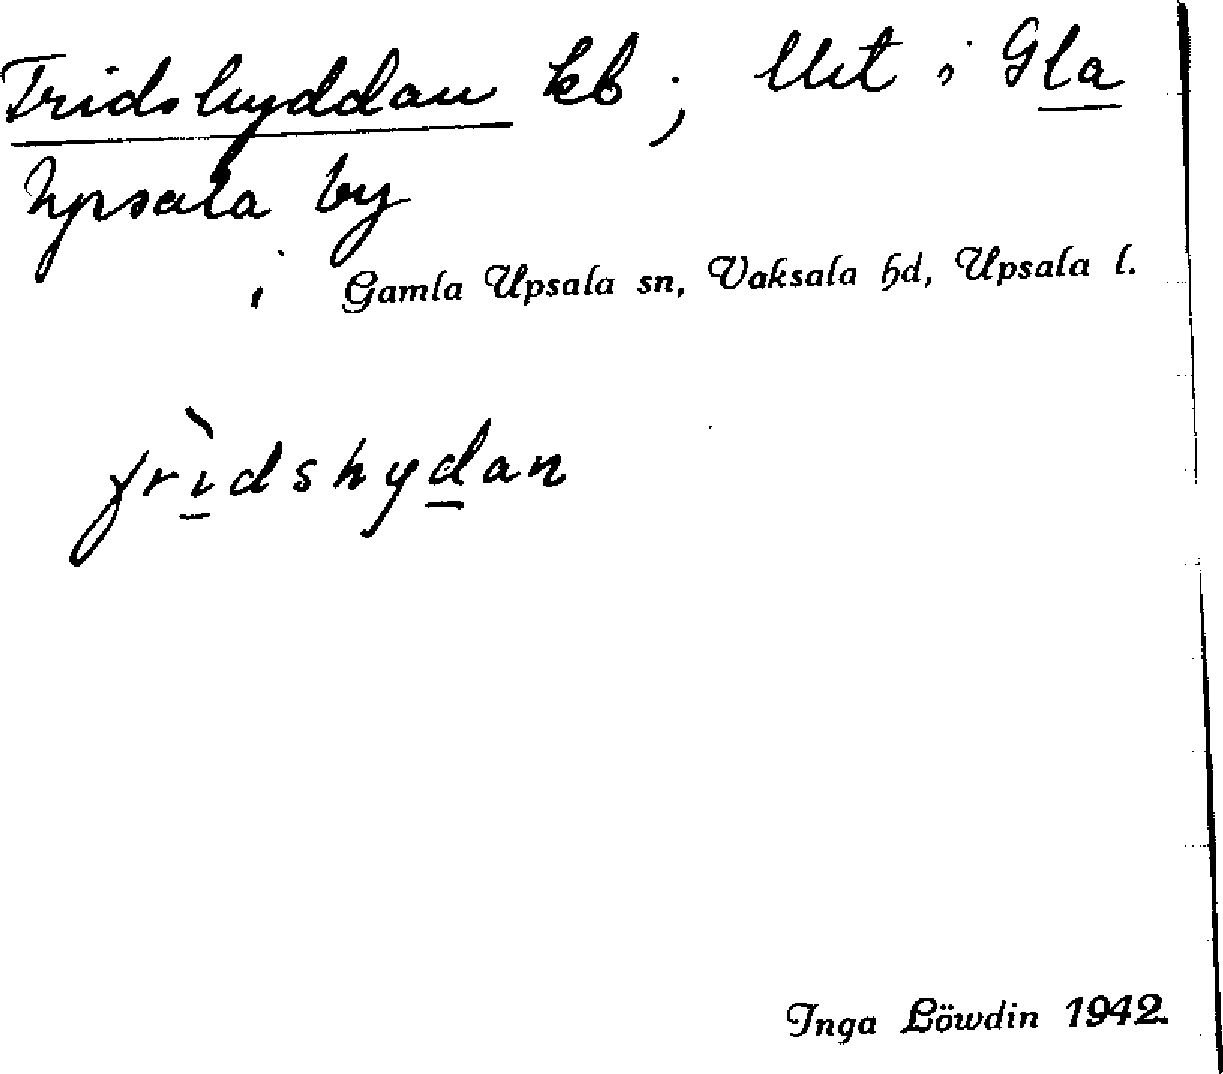 Fridshyddan kb; Utk i Gla
Upsala by
i Gamla Upsala sn, Vaksala hd, Upsala l.
frìdshydan
Inga Löwdin 1942.